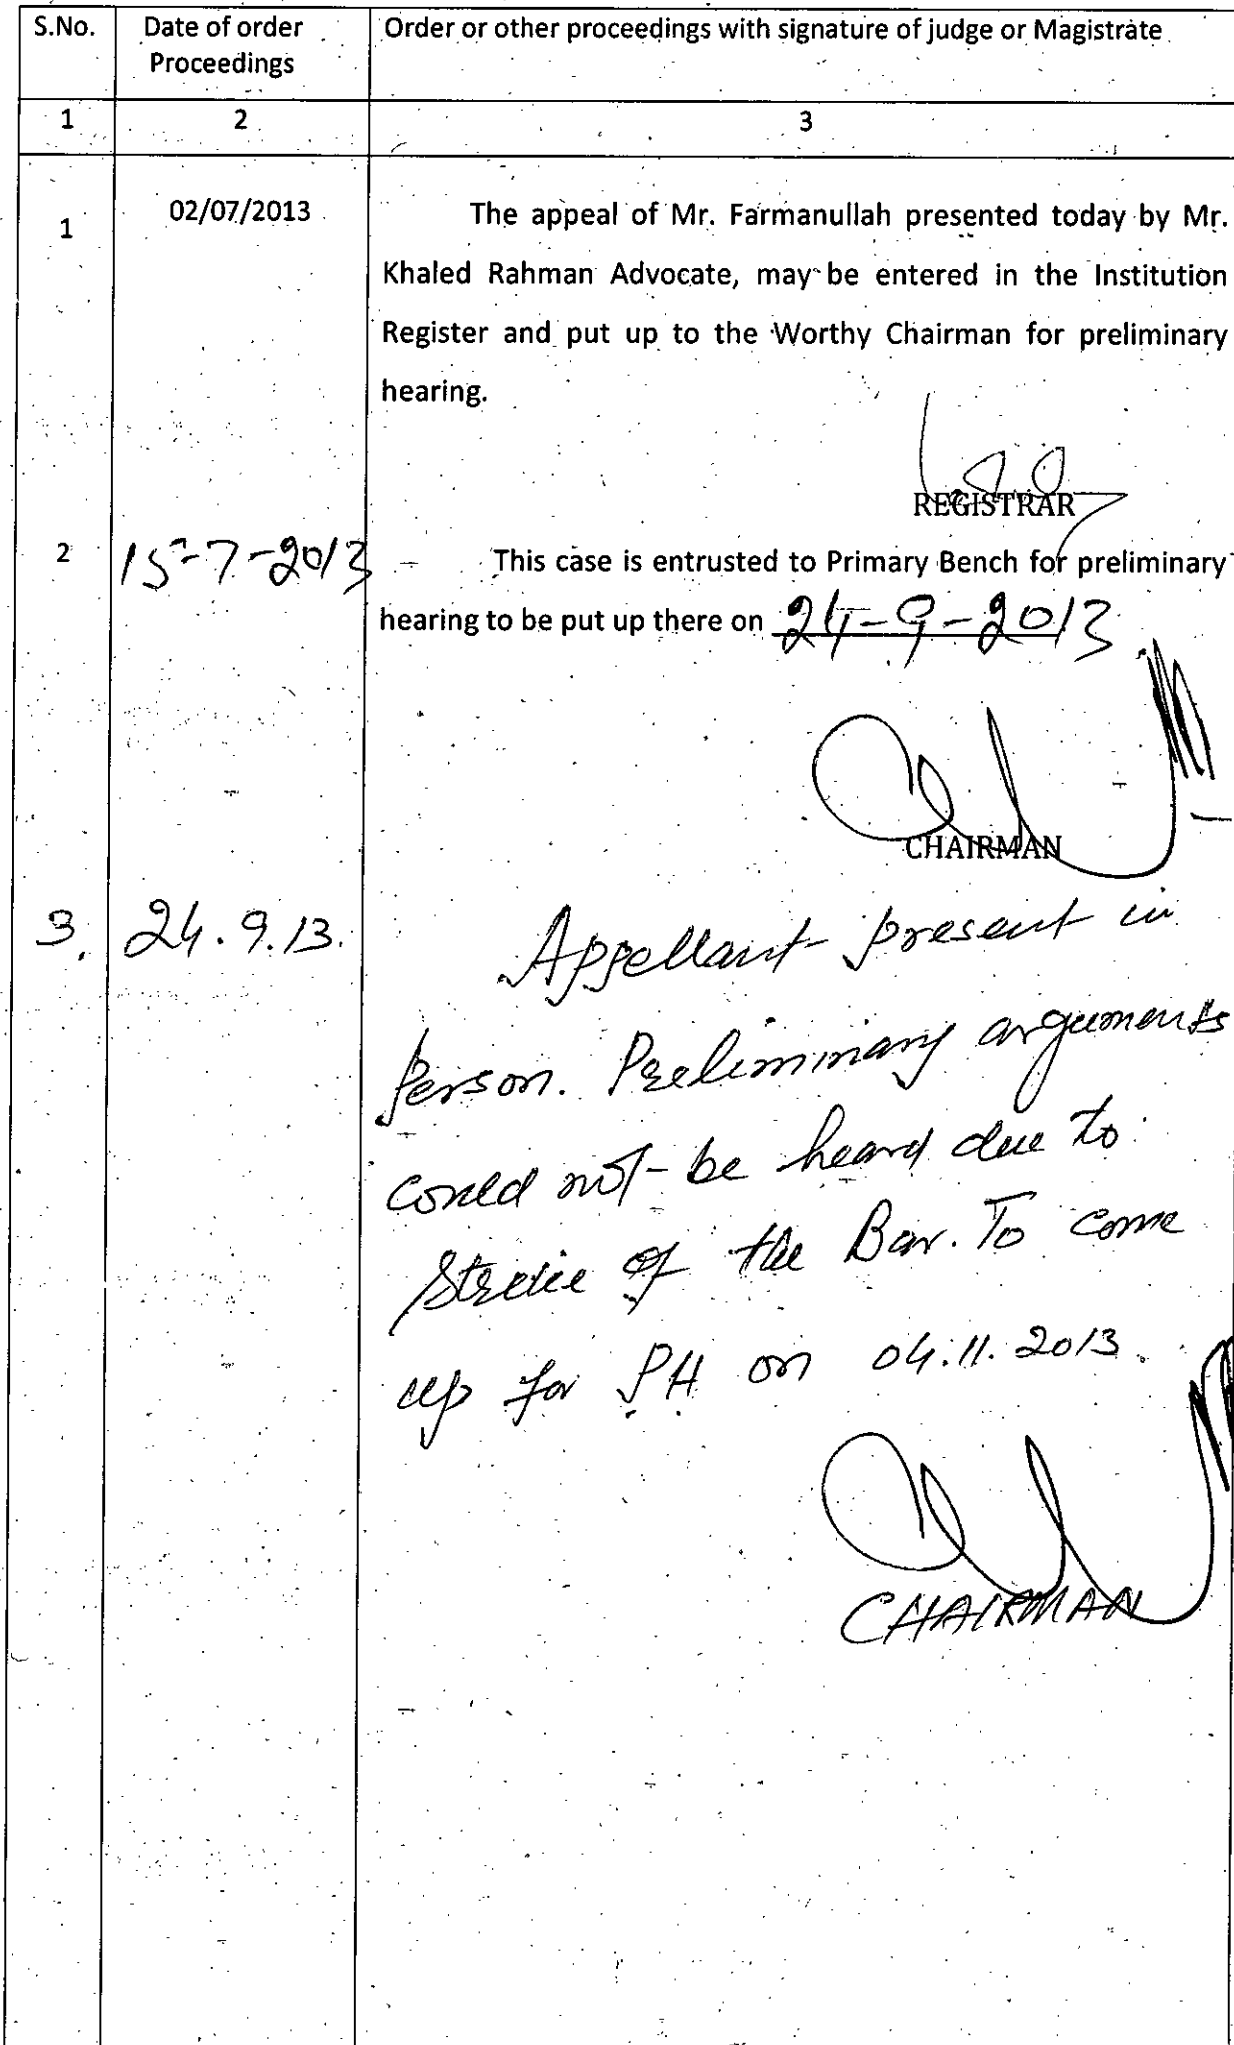 S.No. Date of order Order or other proceedings with signature of judge or Magistrate
Proceedings
1 2 3
1 02/07/2013 The appeal of Mr. Farmanullah presented today by Mr.
Khaled Rahman Advocate, may be entered in the Institution
Register and put up to the Worthy Chairman for preliminary
hearing.
REGISTRAR
2 15-7-2013 This case is entrusted to Primary Bench for preliminary
hearing to be put up there on 24-9-2013
CHAIRMAN
3. 24.9.13. Appellant present in
person. Preliminary arguments
could not be heard due to
strike of the Bar. To come
up for PH on 04.11.2013.
CHAIRMAN